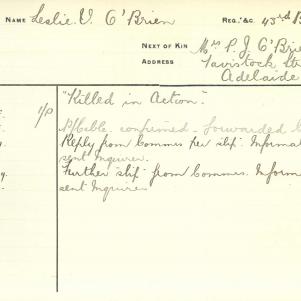 NAME Leslie V. O'Brien REG. &C. 43rd B
NEXT OF KIN Mrs P. J. O'Brie
Tavistock Str
Adelaide
"Killed in Action".
P/Cable confirmed - forwarded
y. Reply from Commes per slip. Informat
sent Inquirer.
y. Further slip from Commes. Inform
sent Inquirer